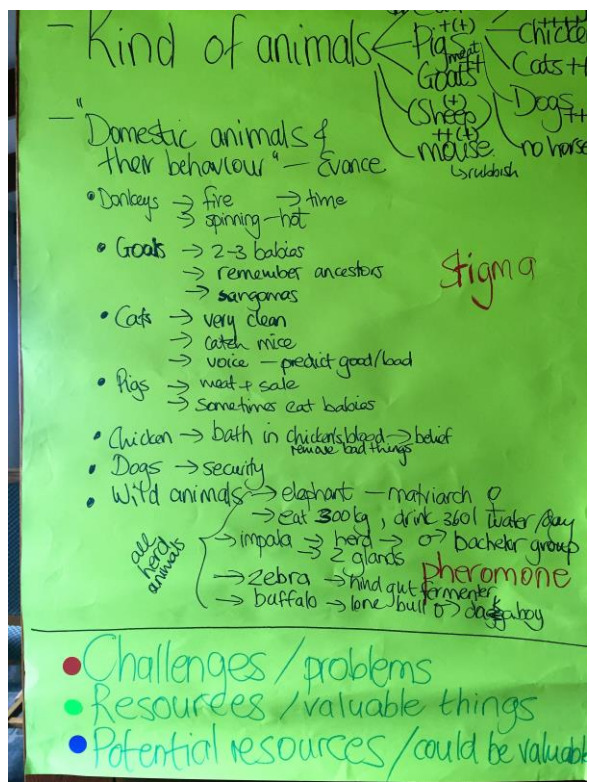 - Kind of animals
+(+)
Pigs
meat
+++
Goats
(+)
(Sheep)
++(+)
mouse
↳rubbish
++++
chicke
Cats ++
Dogs ++
no horse
- "Domestic animals &
their behaviour" - Evance
• Donkeys → fire → time
→ spinning - hot
• Goats → 2-3 babies
→ remember ancestors
→ sangomas
Stigma
• Cats → very clean
→ catch mice
→ voice - predict good/bad
• Pigs → meat + sale
→ sometimes eat babies
• Chicken → bath in chicken's blood → belief
remove bad things
• Dogs → security
• Wild animals → elephant - matriarch ♀
→ eat 300kg, drink 360l water/day
all
herd
animals
→ impala → herd → ♂ → bachelor group
→ 2 glands
pheromone
→ zebra → hind gut fermenter
→ buffalo → lone bull ♂ → daggaboy
• Challenges / problems
• Resources / valuable things
• Potential resources / could be valuable